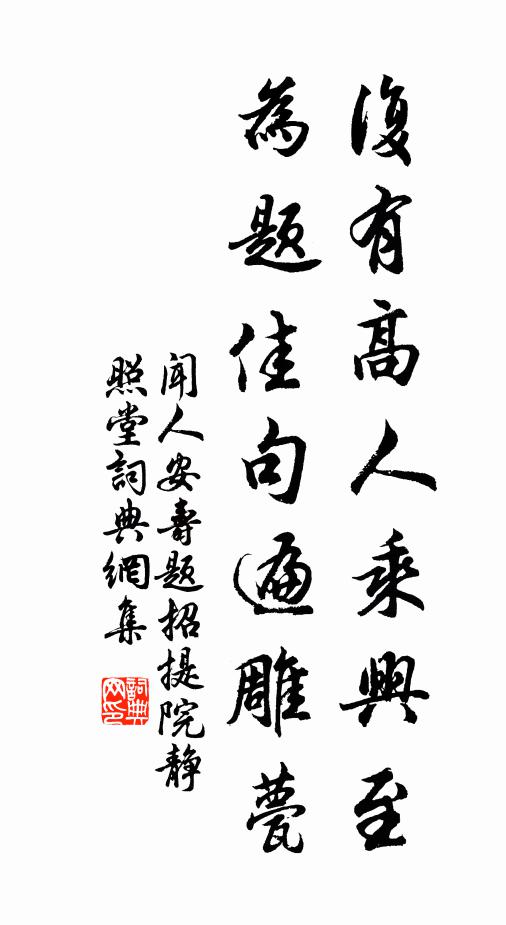 復有高人乘興至
為題佳句遍雕甍
聞人安壽題招提院靜
照堂詞典網集
詞典
网印